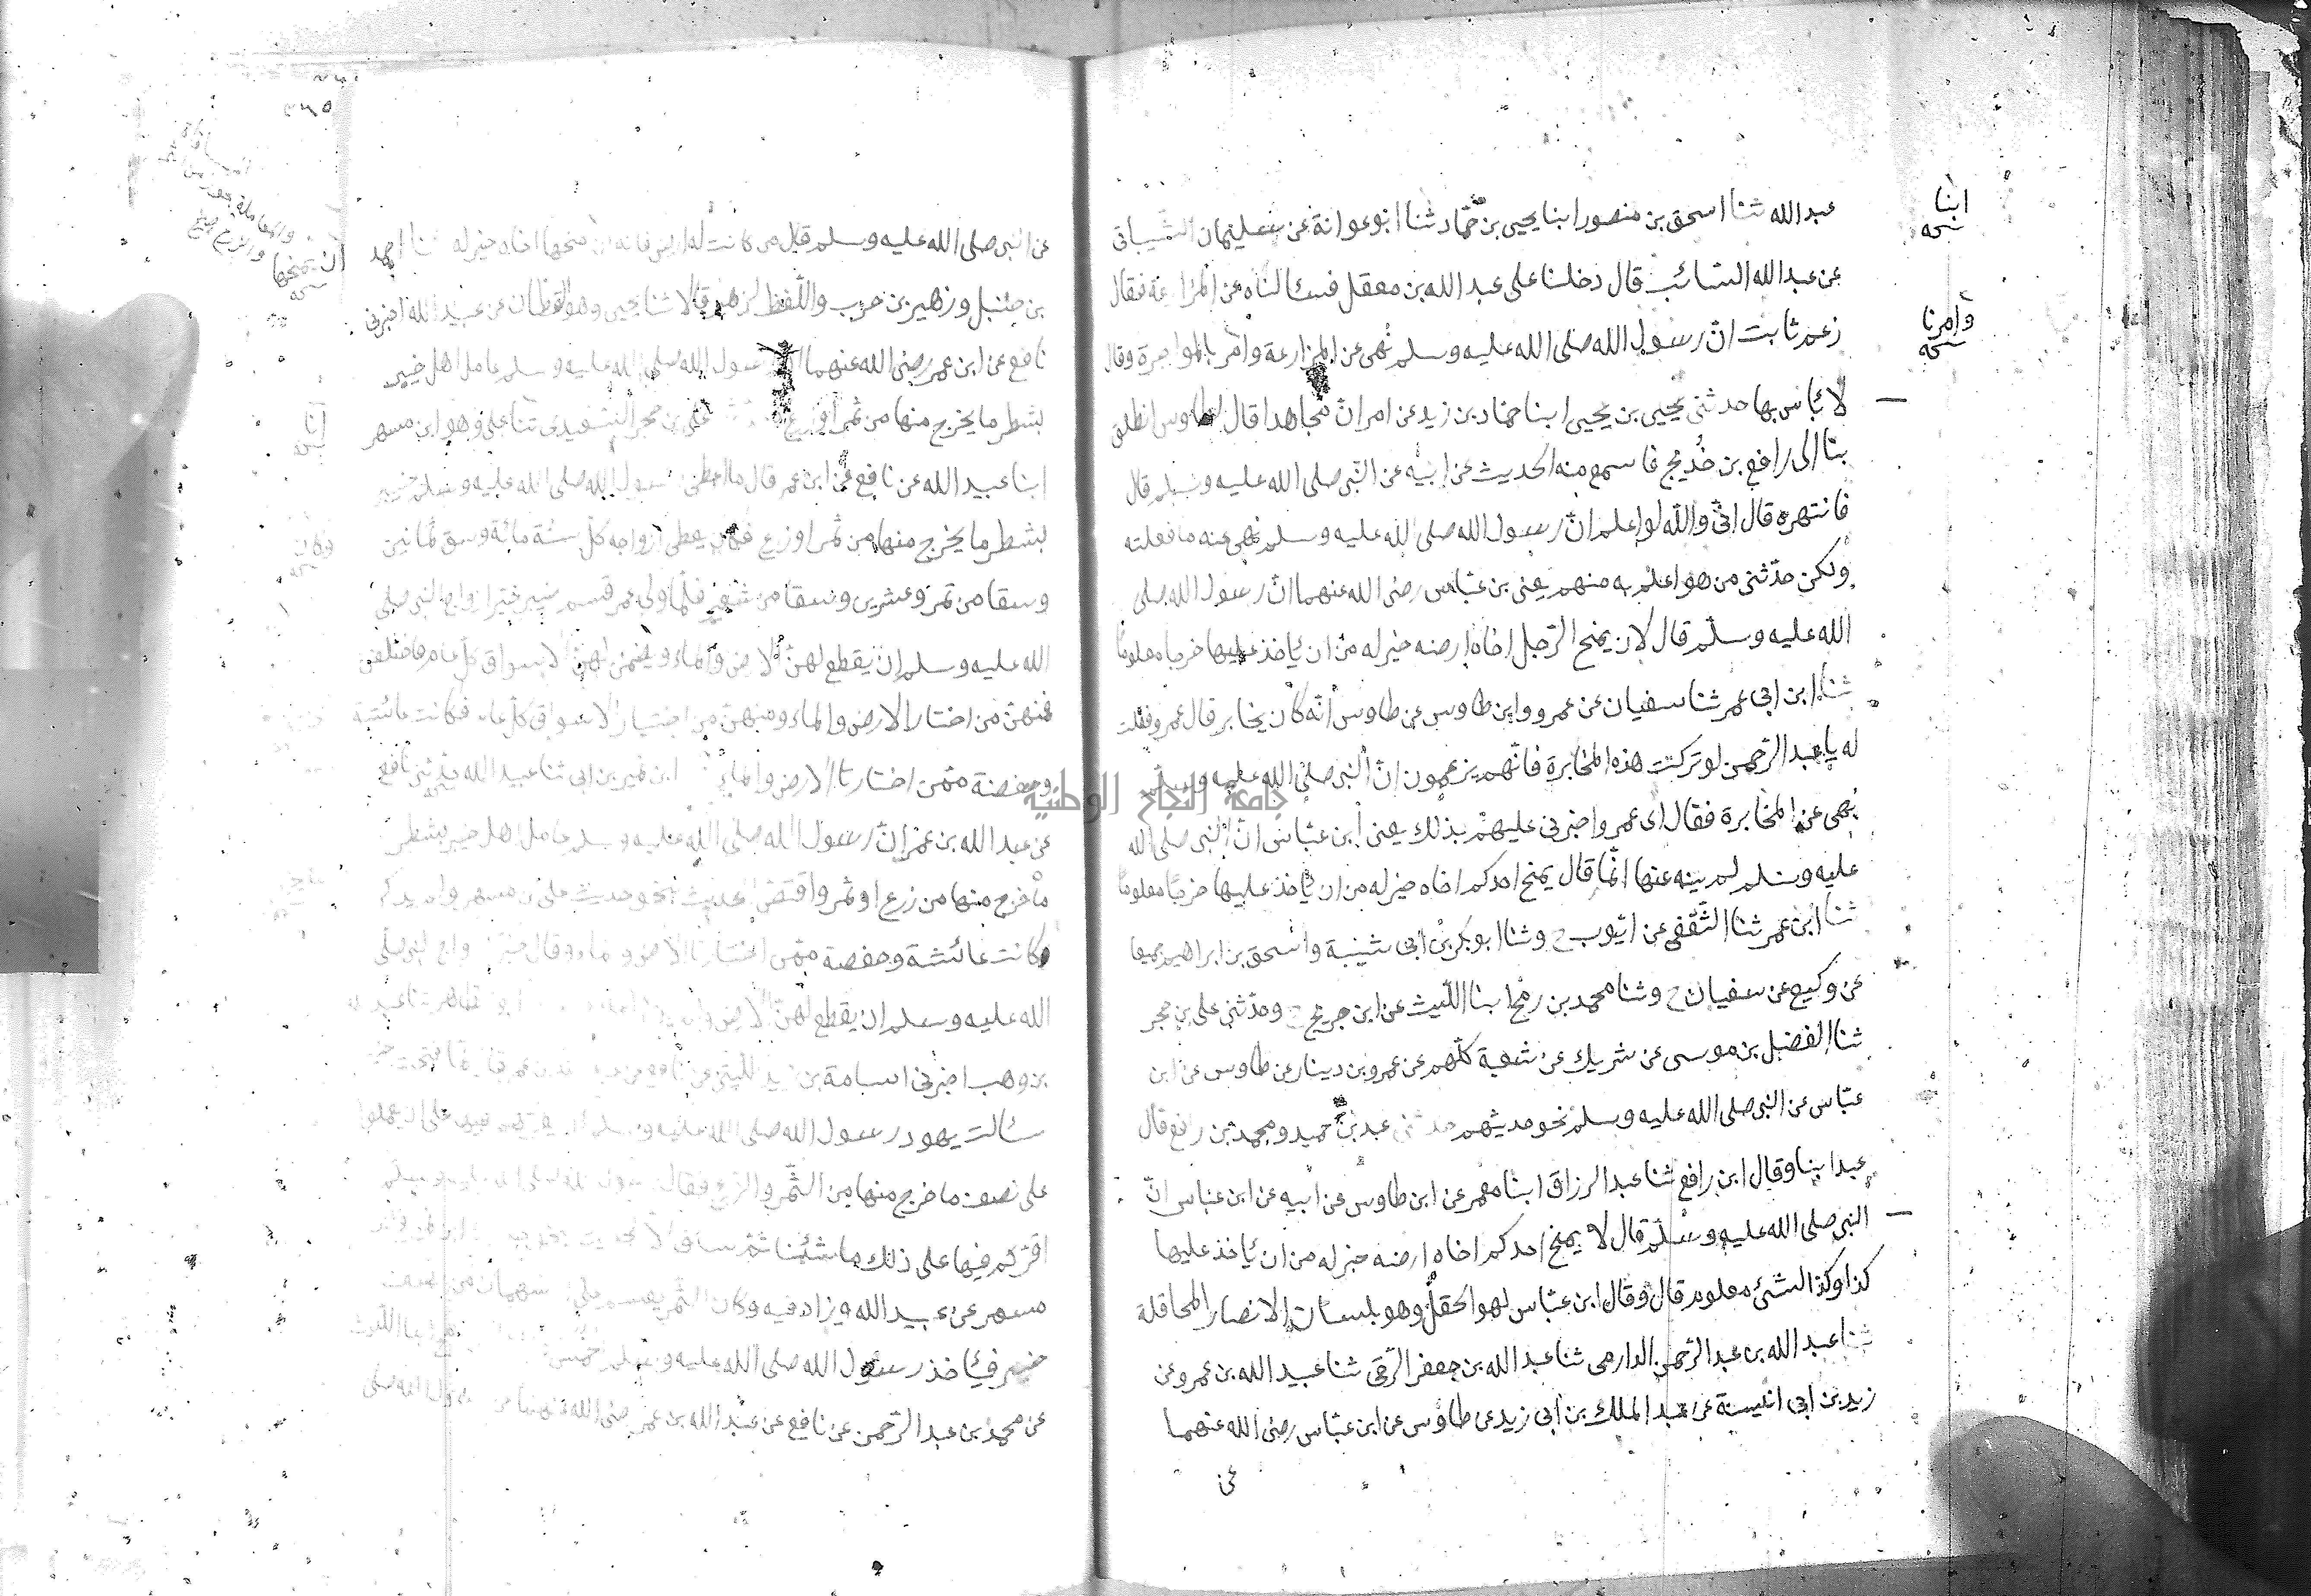 عبدالله ثنا اسحق بن منصور ابنا يحيى بن حماد ثنا ابو عوانة عن سليمان الشيباني
عن عبد الله السائب قال دخلنا على عبد الله بن معقل فسئالناه عن المزارعة فقال
زعم ثابت ان رسول الله صلى الله عليه وسلم نهى عن المزارعة وامر بالمواجرة وقال
لا بأس بها حدثنى يحيى بن يحيى ابنا حماد بن زيد عن امر ان مجاهدا قال لطاوس انطلق
بنا الى رافع بن خديج فاسمع منه الحديث عن ابيه عن النبى صلى الله عليه وسلم قال
فانتهره قال انى والله لو اعلم ان رسول الله صلى الله عليه وسلم نهى عنه ما فعلته
ولكن حدثنى من هو اعلم به منهم يعنى بن عباس رضى الله عنهما ان رسول الله صلى
الله عليه وسلم قال لان يمنح الرجل اخاه ارضه خير له من ان ياخذ عليها خرجا معلوما
ثنا ابن ابى عمر ثنا سفيان عن عمرو وابن طاوس عن طاوس انه كان يخابر قال عمرو فقلت
له يا عبد الرحمن لو تركت هذه المخابرة فانهم يزعمون ان النبى صلى الله عليه وسلم
نهى عن المخابرة فقال اى عمرو اخبرنى عليهم بذلك يعنى ابن عباس ان النبى صلى الله
عليه وسلم لم ينه عنها انما قال يمنح احدكم اخاه خير له من ان ياخذ عليها خرجا معلوما
ثنا ابن عمر ثنا الثقفى عن ايوب ح وثنا ابو بكر بن ابى شيبة واسحق بن ابراهيم جميعا
عن وكيع عن سفيان ح وثنا محمد بن رمح ابنا الليث عن ابن جريج ح وحدثنى على بن حجر
ثنا الفضل بن موسى عن شريك عن شعبة كلهم عن عمرو بن دينار عن طاوس عن ابن
عباس عن النبى صلى الله عليه وسلم نحو حديثهم حدثنى عبد بن حميد ومحمد بن رافع قال
عبد ابنا وقال ابن رافع ثنا عبد الرزاق ابنا معمر عن ابن طاوس عن ابيه عن ابن عباس ان
النبى صلى الله عليه وسلم قال لا يمنح احدكم اخاه ارضه خير له من ان ياخذ عليها
كذا وكذا الشئ معلوم قال وقال ابن عباس لهو الحقل وهو بلسان الانصار المحاقلة
ثنا عبد الله بن عبد الرحمن الدارمى ثنا عبد الله بن جعفر الرقى ثنا عبيد الله بن عمرو عن
زيد بن ابى انيسة عن عبد الملك بن ابى زيد عن طاوس عن ابن عباس رضى الله عنهما
عن
ابنا
نسخه
وامرنا
نسخه
عن النبى صلى الله عليه وسلم قال من كانت له ارض فانه ان منحها اخاه خير له ثنا احمد
بن حنبل وزهير بن حرب واللفظ لزهير قالا ثنا يحيى وهو القطان عن عبيد الله اخبرنى
نافع عن ابن عمر رضى الله عنهما ان رسول الله صلى الله عليه وسلم عامل اهل خيبر
بشطر ما يخرج منها من ثمر او زرع على بن حجر السعدى ثنا على وهو ابن مسهر
ابنا عبيد الله عن نافع عن ابن عمر قال ما اعطى رسول الله صلى الله عليه وسلم خيبر
بشطر ما يخرج منها من ثمر او زرع فكان يعطى ازواجه كل سنة مائة وسق ثمانين
وسقا من تمر وعشرين وسقا من شعير فلما ولى عمر قسم خيبر خير ازواج النبى صلى
الله عليه وسلم ان يقطع لهن الارض والماء ويضمن لهن الاسواق كل عام فاختلفن
فمنهن من اختار الارض والماء ومنهن من اختار الاسواق كل عام فكانت عائشة
وحفصة ممن اختارتا الارض والماء ابن نمير بن ابى ثنا عبيد الله حدثنى نافع
عن عبد الله بن عمر ان رسول الله صلى الله عليه وسلم عامل اهل خيبر بشطر
ما خرج منها من زرع او ثمر واقتص الحديث بنحو حديث على بن مسهر ولم يذكر
وكانت عائشة وحفصة ممن اختارتا الارض والماء وقال خير ازواج النبى صلى
الله عليه وسلم ان يقطع لهن الارض ابو الطاهر ثنا عبد الله
بن وهب اخبرنى اسامة بن زيد الليثى عن نافع عن عبد الله بن عمر قال لما افتتحت خيبر
سئالت يهود رسول الله صلى الله عليه وسلم ان يقرهم فيها على ان يعملوا
على نصف ما خرج منها من الثمر والزرع فقال رسول الله صلى الله عليه وسلم
اقركم فيها على ذلك ما شئنا ثم ساق الحديث بنحو
مسهر عن عبيد الله وزاد فيه وكان الثمر يقسم على السهمان من نصف
خيبر فياخذ رسول الله صلى الله عليه وسلم الخمس
عن محمد بن عبد الرحمن عن نافع عن عبد الله بن عمر رضى الله عنهما عن رسول الله صلى
ان يمنحها
نسخه
انا
نسخه
وكان
نسخه
جامعة النجاح الوطنية